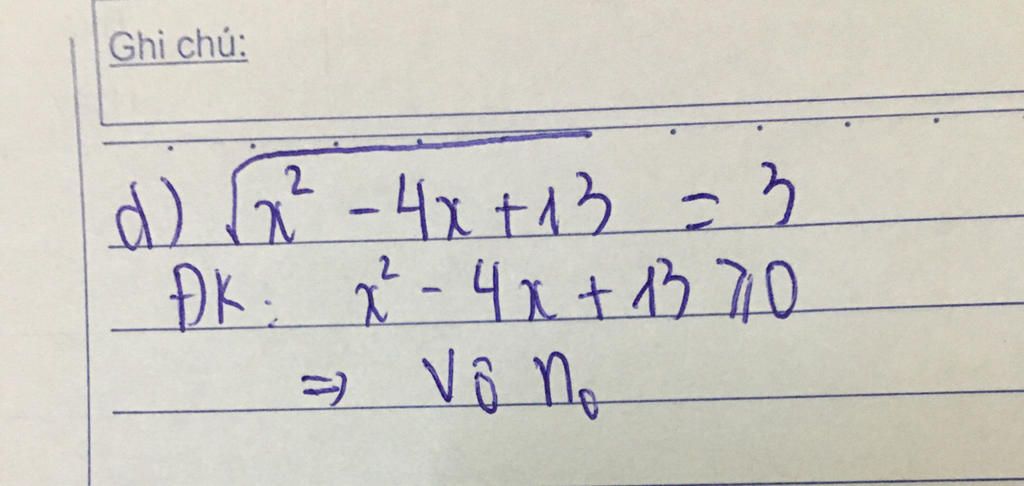 Ghi chú:
d) √(x² - 4x + 13) = 3
ĐK: x² - 4x + 13 ⩾ 0
⇒ Vô n₀